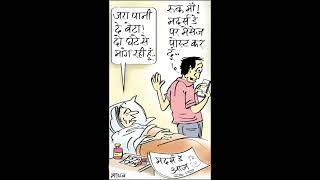 जरा पानी
दे बेटा!
दो घंटे से
मांग रही हूं..
रुक माँ!
मदर्स डे
पर मेसेज
पोस्ट कर
दूं..
मदर्स डे
आज